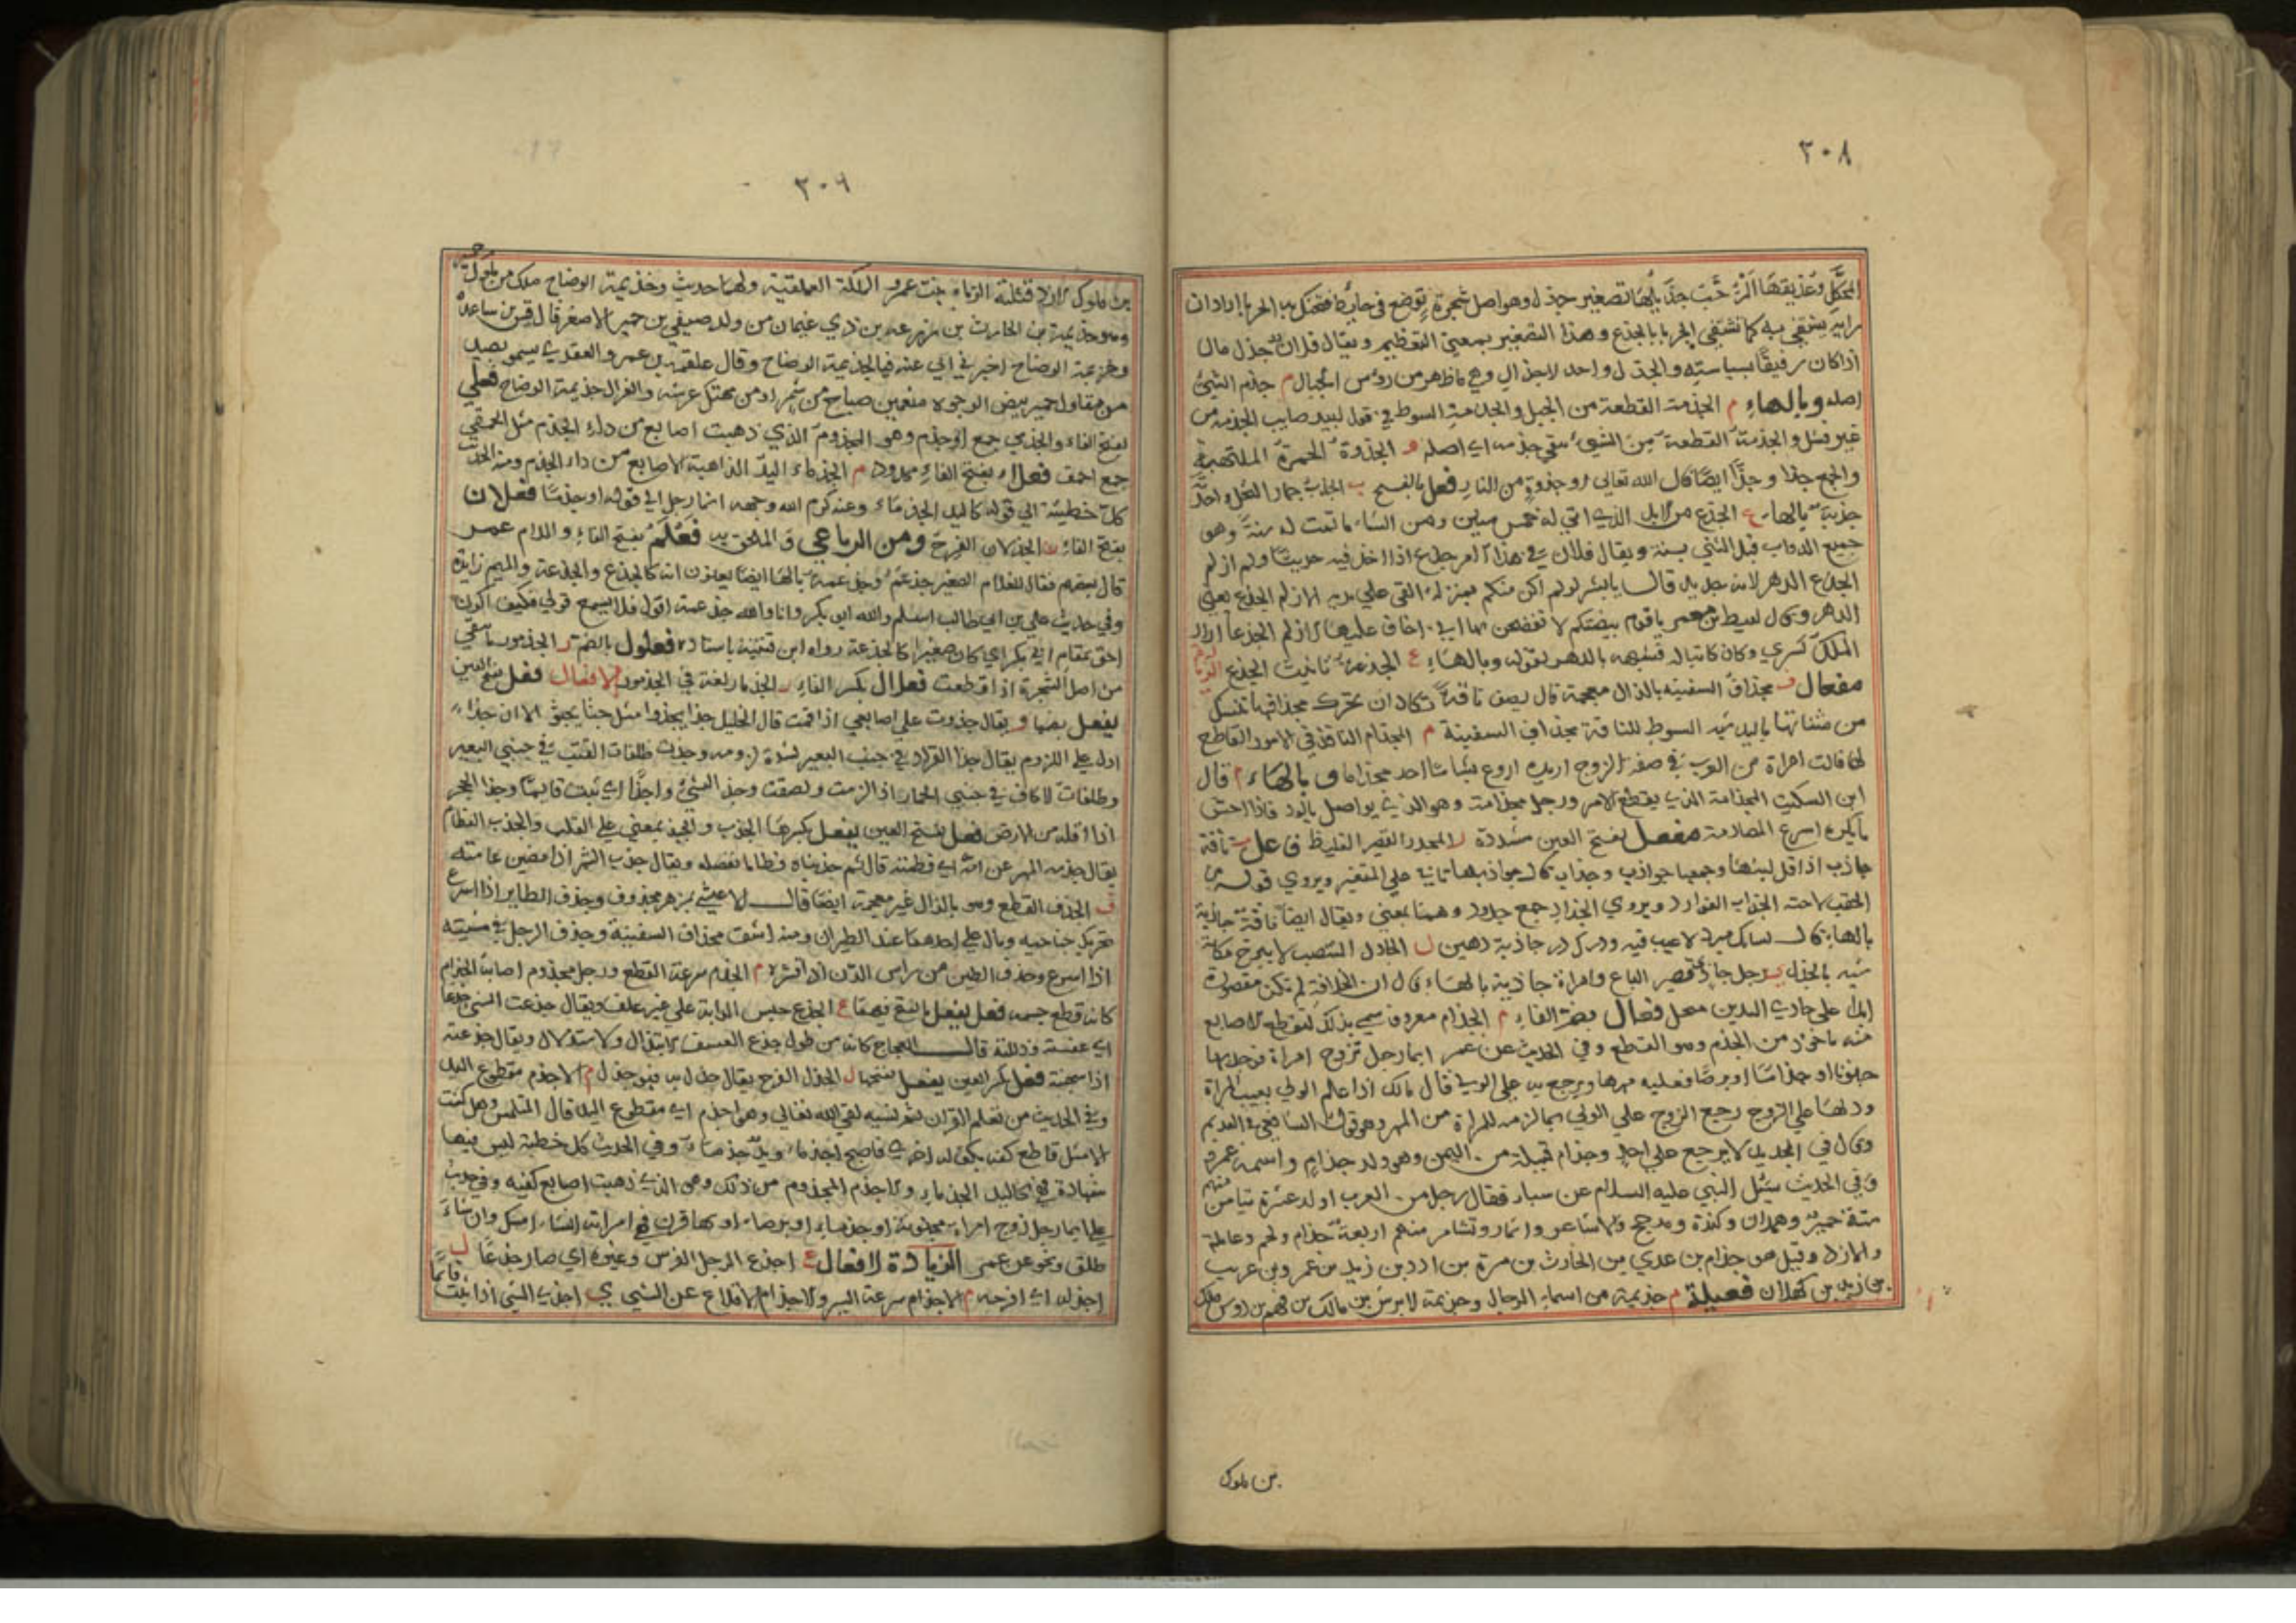 ٣٠٨
المحكك وعذيقها المرجب جذيلها تصغير جذل وهو اصل شجرة توضع في حايط فتحتك به الجربا اراد ان
رايه يشتفي به كما تشتفي الجربا بالجذع وهذا التصغير بمعنى التعظيم ويقال فلان جذل مال
اذا كان رفيقًا بسياسته والجذل واحد الاجذال وهي ما ظهر من رؤس الجبال م جذم الشئ
اصله وبالهاء م الجذمة القطعة من الحبل والجذمة السوط في قول لبيد صايب الجذمة من
غير فشل والجذمة القطعة من الشئ يبقى جذمه اي اصله و الجذوة الجمرة الملتهبة
والجمع جذا وجذًا ايضًا قال الله تعالى او جذوة من النار فعل بالفتح ب الجذب جمار النخل واحدته
جذبة بالهاء ع الجذع من الابل الذي اتى له خمس سنين ومن الشاء ما تمت له سنة وهو
جميع الدواب قبل الثني بسنة ويقال فلان في هذا الامر جذع اذا اخذ فيه حديثًا ولم ازلم
الجذع الدهر لانه جديد قال يا بشر لو لم اكن منكم بمنزلة القى علي يديه الازلم الجذع يعني
الدهر وقال لقيط بن معمر يا قوم بيضتكم لا تفضحن بها اني اخاف عليها الازلم الجذعا اراد
الملك كسرى وكان كاتبا له فشبهه بالدهر بقوله وبالهاء ع الجذعة تانيث الجذع
مفعال ف مجذاف السفينة بالذال معجمة قال يصف ناقة تكاد ان حرك مجذافها تنسل
من مثناتها باليد شبه السوط للناقة بمجذاف السفينة م المجذام النافذ في الامور القاطع
لها قالت امراة من العرب في صفة الزوج اريده اروع بساما احد مجذاما و بالهاء م قال
ابن السكيت المجذامة الذي يقطع الامر ورجل مجذامة وهو الذي يواصل بالود فاذا احس
ما يكره اسرع المصارمة مفعل بفتح العين مشددة ر المجذر القصير الغليظ فاعل ب ناقة
جاذب اذا قل لبنها وجمعها جواذب وجذاب قال جواذبها تابي على المتغبر ويروى قوله من
الحقب لاحته الجذاب الغوارد ويروى الجذاد جمع جدود وهما بمعنى ويقال ايضًا ناقة جاذبة
بالهاء قال لسانك مبرد لا عيب فيه ودرك در جاذبة دهين ل الجاذل المنتصب لا يبرح مكانه
شبه بالجذل ي رجل جاذ قصير الباع وامراة جاذية بالهاء قال ان الخلافة لم تكن مقصورة
ابدا على جاذي اليدين مبخل فعال بضم الفاء م الجذام معروف سمي بذلك لتقطع الاصابع
منه ماخوذ من الجذم وهو القطع وفي الحديث عن عمر ايما رجل تزوج امراة فوجد بها
جنونا او جذامًا او برصًا فعليه مهرها ويرجع به على الولي قال مالك اذا علم الولي بعيب المراة
ودلسها على الزوج رجع الزوج على الولي بما لزمه للمراة من المهر وهو قول الشافعي في القديم
وقال في الجديد لا يرجع على احد وجذام قبيلة من اليمن وهو ولد جذام واسمه عمرو
وفي الحديث سئل النبي عليه السلام عن سبأ فقال رجل من العرب اولد عشرة تيامن منهم
ستة حمير وهمدان وكندة ومذحج والاشاعر وانمار وتشام منهم اربعة جذام ولخم وعاملة
والازد وقيل هو جذام بن عدي بن الحارث بن مرة بن ادد بن زيد بن عمرو بن عريب
بن زيد بن كهلان فعيلة م جذيمة من اسماء الرجال وجذيمة الابرش بن مالك بن فهم بن دوس ملك
بن ملوك
٣٠٩
بن ملوك الازد قتلته الزباء بنت عمرو الملكة العملقية ولها حديث وجذيمة الوضاح ملك من ملوك حمير
وهو جذيمة بن الحارث بن زرعة بن ذي غيمان من ولد صيفي بن حمير الاصغر قال قس بن ساعدة
وجذيمة الوضاح اخبرني ابي عنه فيالجذيمة الوضاح وقال علقمة بن عمرو العقدي يسمو بصيد
من مقاول حمير بيض الوجوه منعمين صباح من شمر او من مهتك عرشه والغر ال جذيمة الوضاح فعلى
بفتح الفاء والجذمى جمع اجذم وهو المجذوم الذي ذهبت اصابع من داء الجذم مثل الحمقى
جمع احمق فعلاء بفتح الفاء ممدود م الجذماء اليد الذاهبة الاصابع من داء الجذم ومنه الحديث
كل خطبة الى قوله كاليد الجذماء وعنه كرم الله وجهه ايما رجل الى قوله او جذمًا فعلان
بفتح الفاء ل الجذلان الفرح ومن الرباعي والملحق به فعلم بفتح الفاء واللام عمر
قال بعضهم فقال للغلام الصغير جذعم وجذعمة بالهاء ايضا يعنون انه كالجذع والجذعة والميم زايدة
وفي حديث علي بن ابي طالب اسلم والله ابي بكر وانا والله جذعمة اقول فلا يسمع قولي فكيف اكون
احق بمقام ابي بكر اي كان صغيرا كالجذعة رواه ابن قتيبة باسناد فعلول بالضم ر الجذمور ما بقي
من اصل الشجرة اذا قطعت فعلال بكسر الفاء ر الجذمار لغة في الجذمور الافعال فعل بفتح العين
يفعل بضمها و يقال جذوت على اصابعي اذا قمت قال الخليل جذا يجذوا مثل جثا يجثو الا ان جذا
ادل على اللزوم يقال جذا القراد في جنب البعير لشدة لزومه وجذت ظلفات القتب في جنبي البعير
وظلفات الاكاف في جنبي الحمار اذا لزمت ولصقت وجذ الشئ واجذا اي ثبت قايمًا وجذا الحجر
اذا اقله من الارض فعل بفتح العين يفعل بكسرها الجذب و الجبذ بمعنى على القلب والجذب الفطام
يقال جذبه المهر عن امه اي فطمته قال ثم جذبناه فطاما نفصله ويقال جذب الشهر اذا مضى عامته
ف الجذف القطع وهو بالذال غير معجمة ايضًا قال الاعشى بمزهر مجذوف وجذف الطاير اذا اسرع
تحريك جناحيه ومال على احدهما عند الطيران ومنه اشتق مجذاف السفينة وجذف الرجل في مشيته
اذا اسرع وجذف الطين من راس الدن اذا قشره م الجذم سرعة القطع ورجل مجذوم اصابه الجذام
كانه قطع جسمه فعل يفعل بالفتح فيهما ع الجذع حبس الدابة على غير علف ويقال جذعت الشئ جذعا
اي عفسته وذللته قال العجاج كانه من طول جذع العسف الابتذال والاستذلال ويقال جذعته
اذا سجنته فعل بكسر العين يفعل بفتحها ل الجذل الفرح يقال جذل به فهو جذل م الاجذم مقطوع اليد
وفي الحديث من تعلم القران ثم نسيه لقي الله تعالى وهو اجذم اي مقطوع اليد قال المتلمس وهل كنت
الا مثل قاطع كفه بكف له اخرى فاصبح اجذما ويد جذماء وفي الحديث كل خطبة ليس فيها
شهادة فهي كاليد الجذماء والاجذم المجذوم من ذلك وهو الذي ذهبت اصابع كفيه وفي حديث
علي ايما رجل تزوج امراة مجنونة او جذماء او برصاء او بها قرن فهي امراته ان شاء امسك وان شاء
طلق ونحو عن عمر الزيادة الافعال ع اجذع الرجل الفرس وغيره اي صار جذعًا ل
اجذله اي افرحه م الاجذام سرعة السير والاجذام الاقلاع عن الشئ ي اجذى الشئ اذا ثبت قائمًا